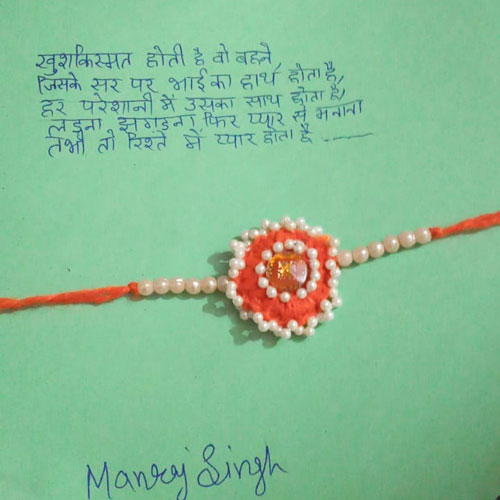 खुशकिस्मत होती है वो बहने,
जिसके सर पर भाई का हाथ होता है,
हर परेशानी में उसका साथ होता है,
लड़ना झगड़ना फिर प्यार से मनाना
तभी तो रिश्ते में प्यार होता है
Manroj Singh